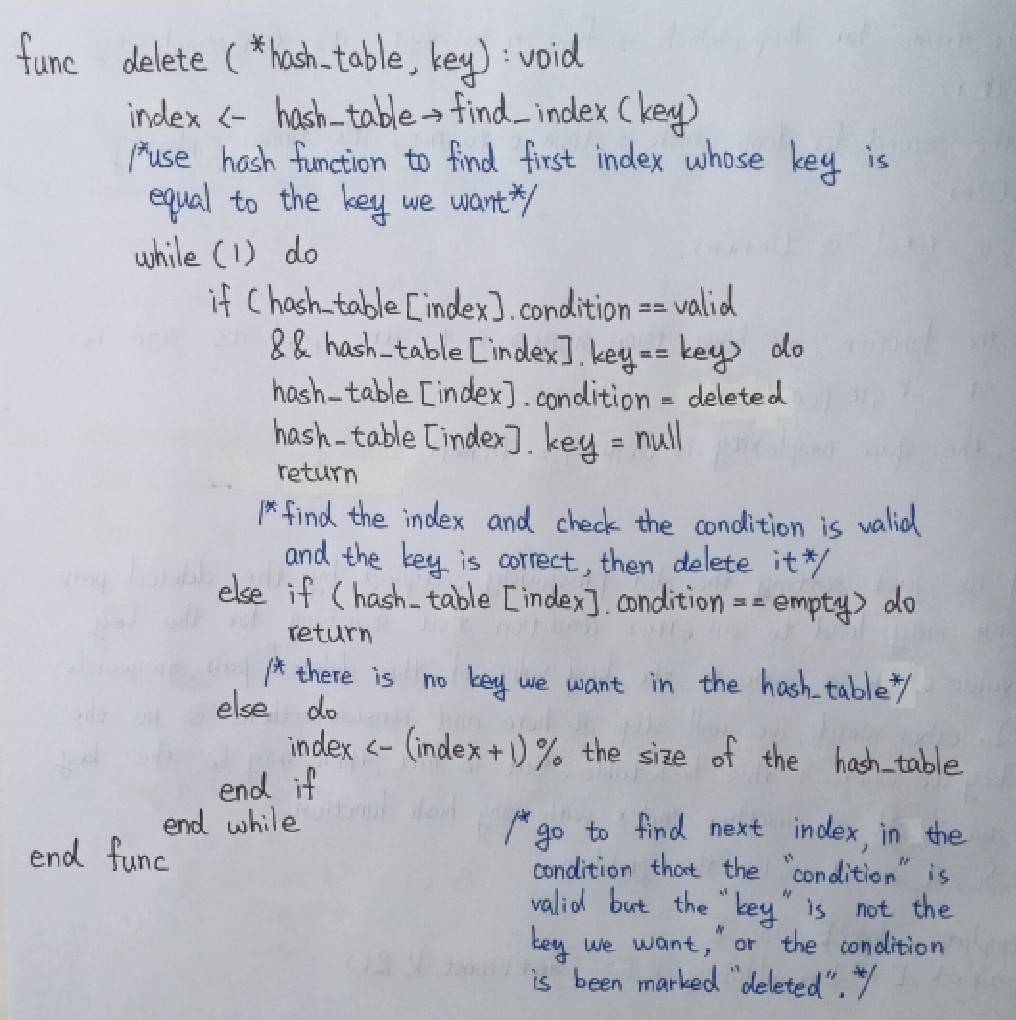 func delete (*hash_table, key) : void
index <- hash_table → find_index (key)
/*use hash function to find first index whose key is
equal to the key we want*/
while (1) do
if (hash_table [index]. condition == valid
&& hash_table [index]. key == key) do
hash_table [index]. condition = deleted
hash_table [index]. key = null
return
/* find the index and check the condition is valid
and the key is correct, then delete it*/
else if (hash_table [index]. condition == empty) do
return
/* there is no key we want in the hash_table*/
else do
index <- (index + 1) % the size of the hash_table
end if
end while
/* go to find next index, in the
end func
condition that the "condition" is
valid but the "key" is not the
key we want," or the condition
is been marked "deleted". */